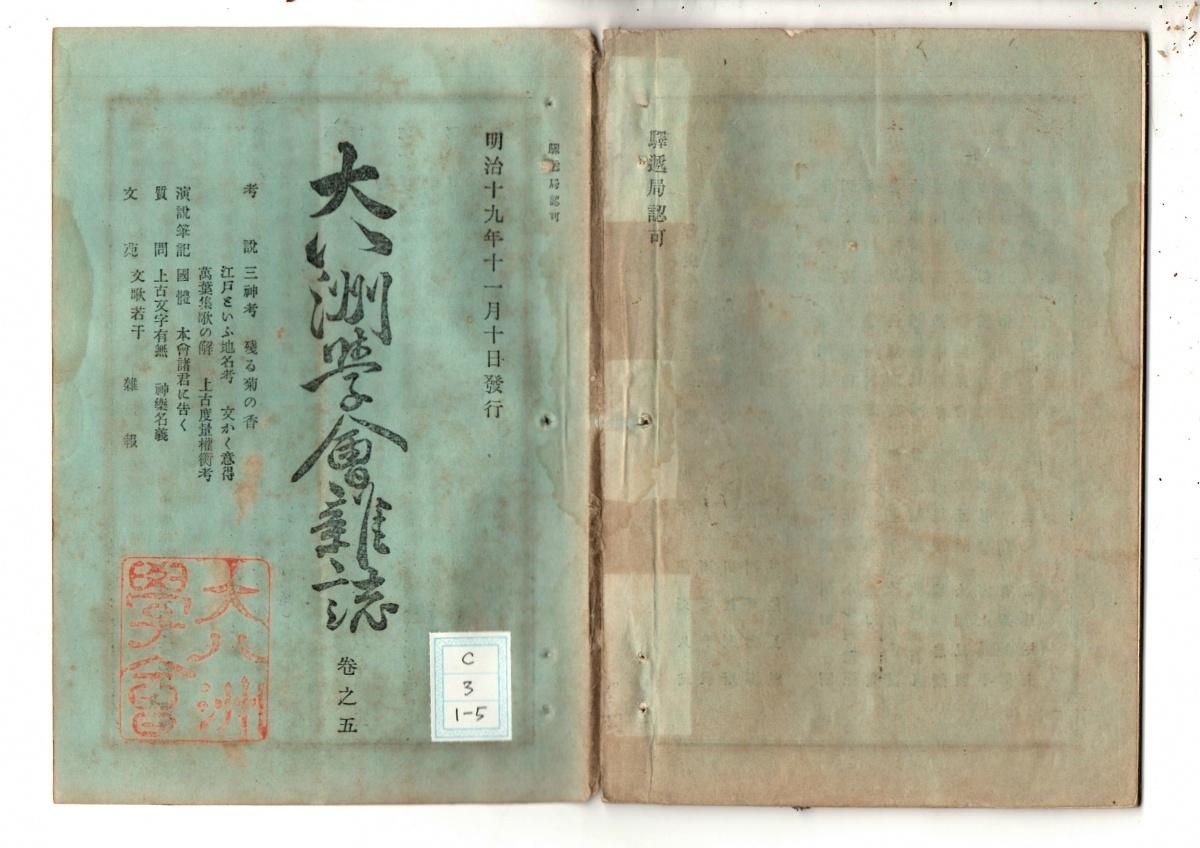 驛遞局認可
驛遞局認可
明治十九年十一月十日發行
大八洲學會雜誌
卷之五
考說 三神考 殘る菊の香
江戸といふ地名考 文かく意得
萬葉集歌の解 上古度量權衡考
演說筆記 國體 本會諸君に告く
質問 上古文字有無 神樂名義
文苑 文歌若干 雜報
大八洲
學會
C
3
1-5